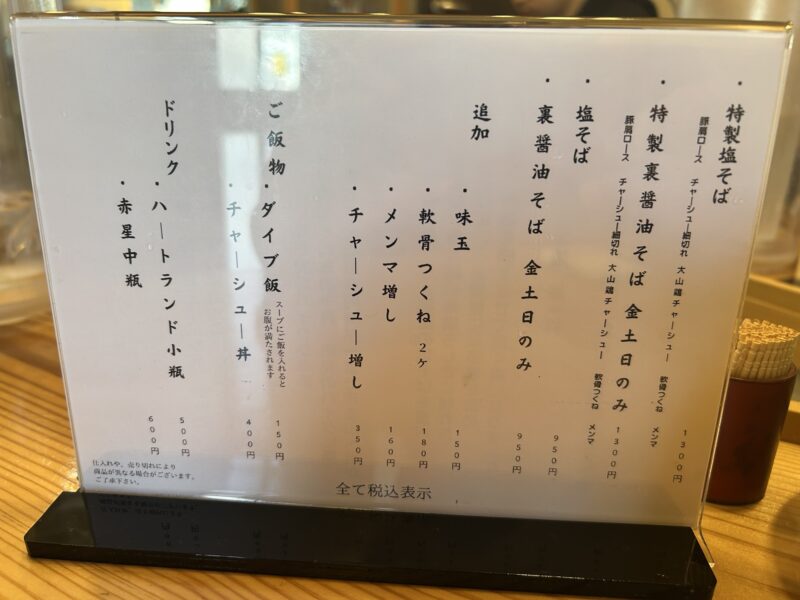 ・特製塩そば 1300円
豚肩ロース チャーシュー細切れ 大山鶏チャーシュー 軟骨つくね メンマ
・特製裏醤油そば 金土日のみ 1300円
豚肩ロース チャーシュー細切れ 大山鶏チャーシュー 軟骨つくね メンマ
・塩そば 950円
・裏醤油そば 金土日のみ 950円
追加
・味玉 150円
・軟骨つくね 2ヶ 180円
・メンマ増し 160円
・チャーシュー増し 350円
ご飯物
・ダイブ飯 スープにご飯を入れると
お腹が満たされます 150円
・チャーシュー丼 400円
ドリンク
・ハートランド小瓶 500円
・赤星中瓶 600円
仕入れや、売り切れにより
商品が異なる場合がございます。
ご了承下さい。
全て税込表示